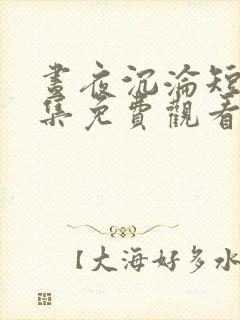 晝夜沉淪短
集免費觀看
【大海好多水